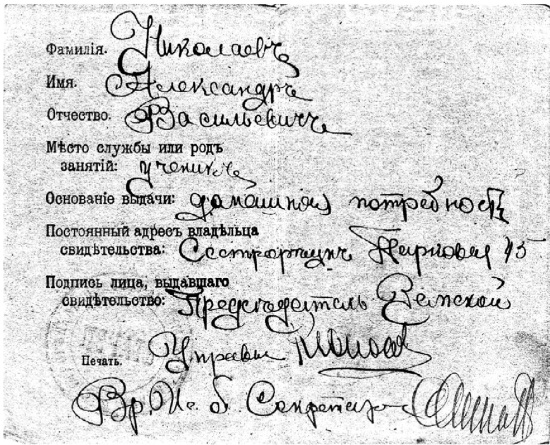 Фамилія: Николаевъ
Имя: Александръ
Отчество: Васильевичъ
Мѣсто службы или родъ
занятій: ученикъ
Основаніе выдачи: домашная потребность
Постоянный адресъ владѣльца
свидѣтельства: Сестрорѣцкъ Парковая 15
Подпись лица, выдавшаго
свидѣтельство: Председатель Земской
Печать. Управы
Вр. И. о. Секретаря